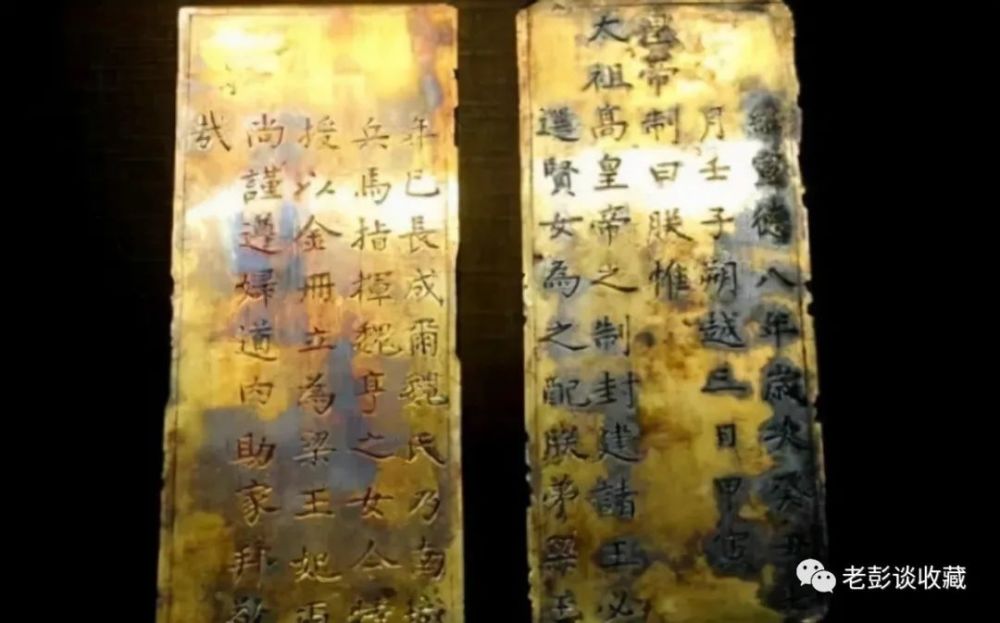 維宣德八年歲次癸丑七
月壬子朔越三日甲寅
皇帝制曰朕惟
太祖高皇帝之制封建諸王必
選賢女為之配朕弟梁王
年已長成爾魏氏乃南城
兵馬指揮魏亨之女今特
授以金冊立為梁王妃爾
尚謹遵婦道內助家邦敬
哉
老彭谈收藏